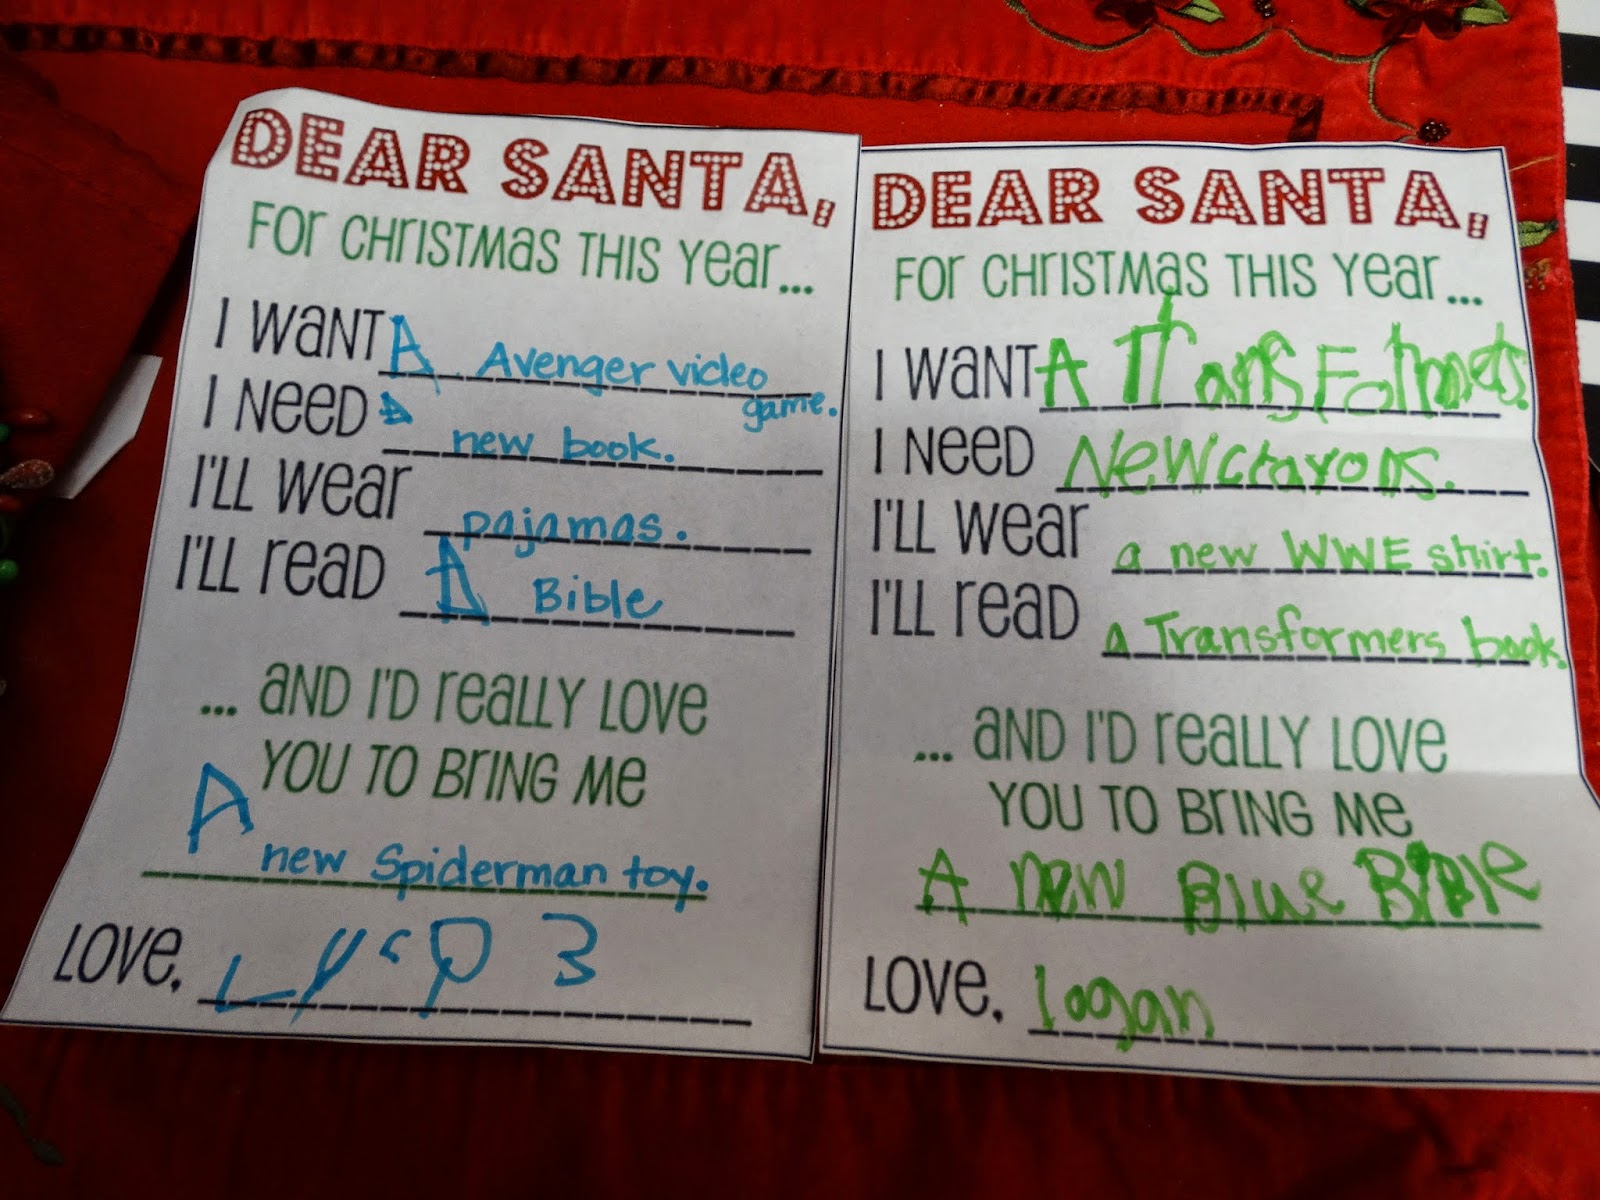 DEAR SANTA,
FOR CHRISTMAS THIS YEAR...
I WANT A Avenger video
game.
I NEED a new book.
I'LL WEAR pajamas.
I'LL READ A Bible
... AND I'D REALLY LOVE
YOU TO BRING ME
A new Spiderman toy.
LOVE,
DEAR SANTA,
FOR CHRISTMAS THIS YEAR...
I WANT A TransFormers.
I NEED New crayons.
I'LL WEAR a new WWE shirt.
I'LL READ a Transformers book.
... AND I'D REALLY LOVE
YOU TO BRING ME
A new Blue BiBle
LOVE, logan